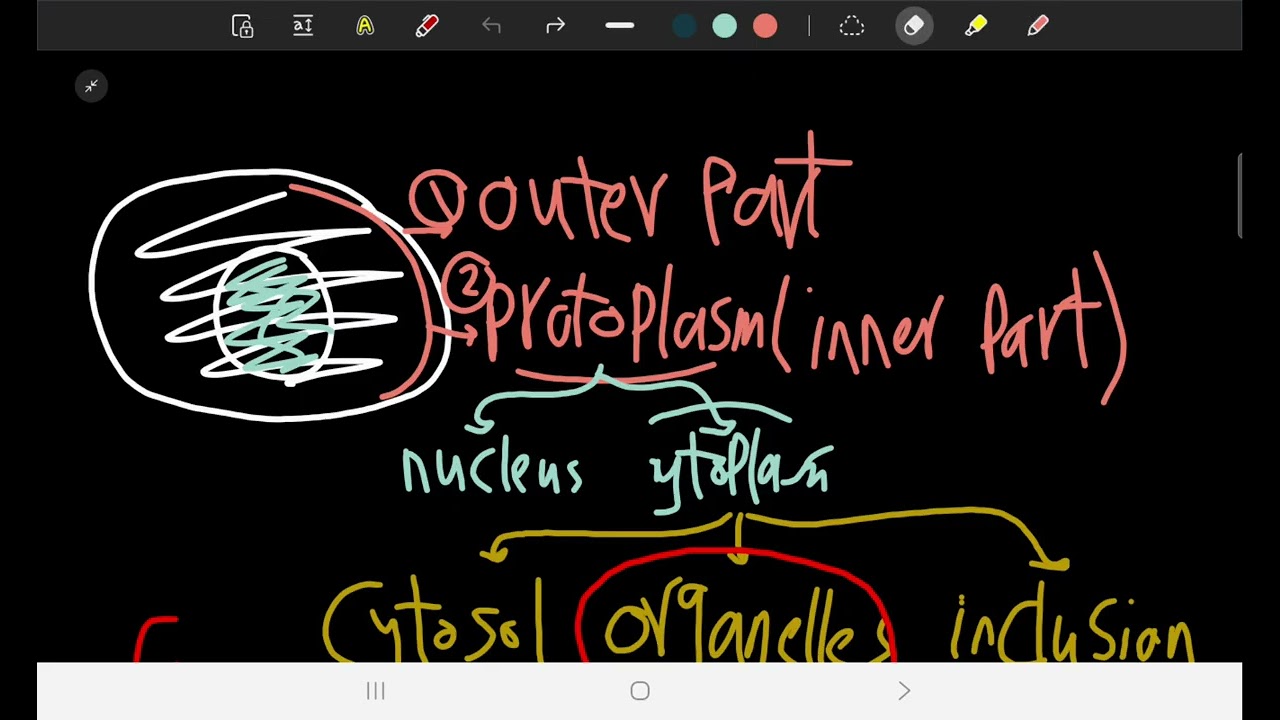 ① outer part
② protoplasm (inner part)
nucleus ytoplasm
Cytosol organelles inclusion